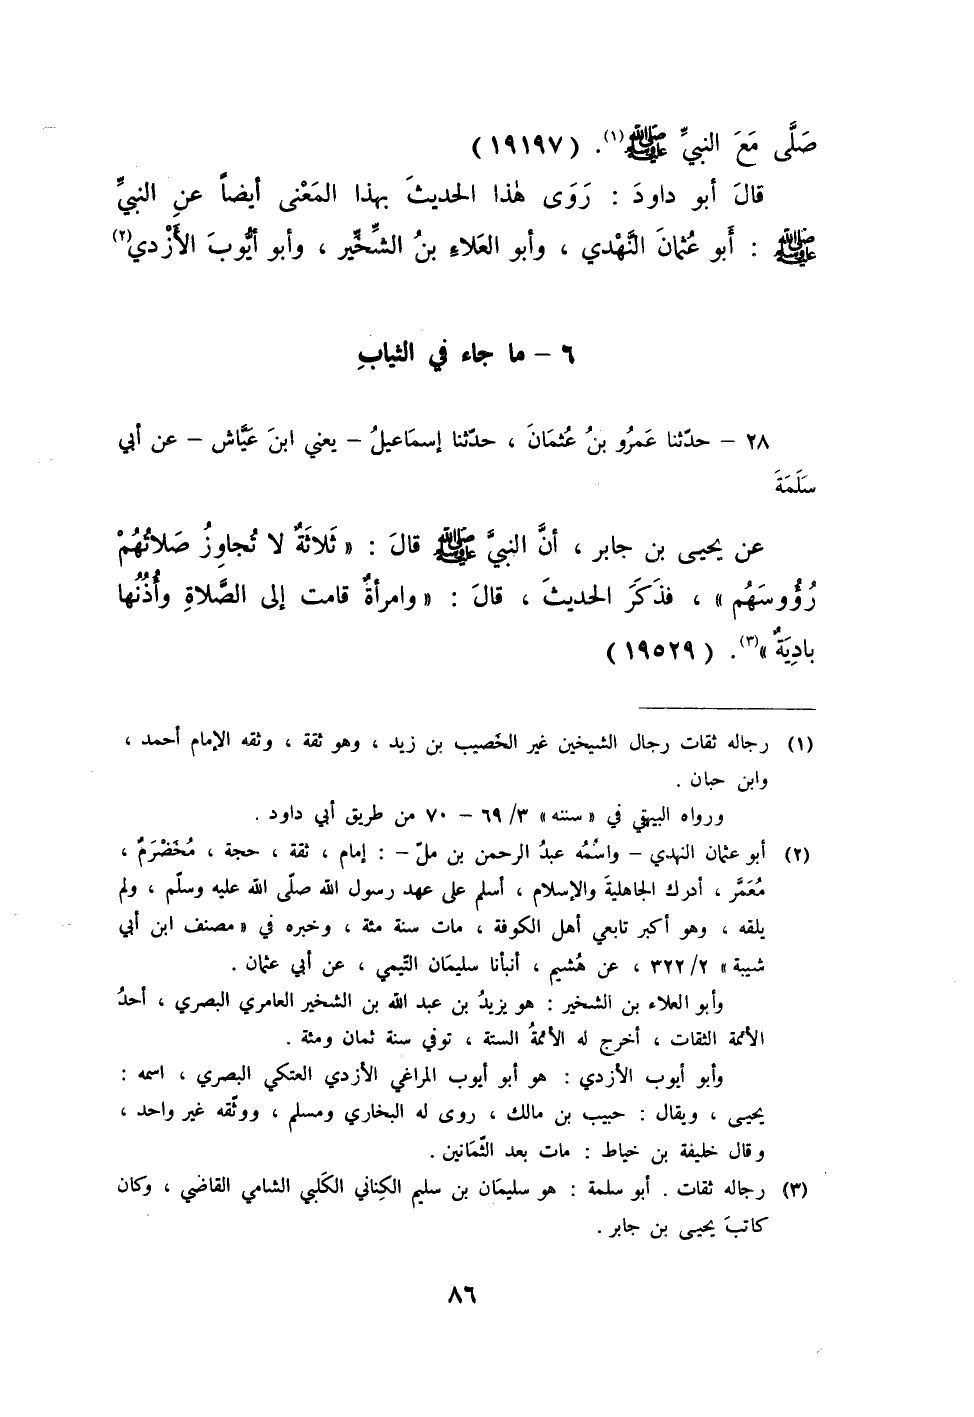 صَلَّى مَعَ النبيِّ ﷺ(١). (١٩١٩٧)
قالَ أبو داودَ : رَوَى هٰذا الحديثَ بهذا المَعْنى أيضاً عنِ النبيِّ
ﷺ : أَبو عُثمانَ النَّهْدي ، وأبو العَلاءِ بنُ الشِّخِّير ، وأبو أيُّوبَ الأَزْدي(٢)
٦ – ما جاء في الثيابِ
٢٨ – حدّثنا عَمرُو بنُ عُثمانَ ، حدّثنا إسمَاعيلُ – يعني ابنَ عَيَّاش – عن أبي
سَلَمَةَ
عن يحيـى بن جابر ، أنَّ النبيَّ ﷺ قالَ : « ثَلاثَةٌ لا تُجاوِزُ صَلاتُهُمْ
رُؤُوسَهُم » ، فذَكَرَ الحديثَ ، قالَ : « وامرأةٌ قامت إلى الصَّلاةِ وأُذُنُها
بادِيَةٌ »(٣). (١٩٥٢٩)
(١) رجاله ثقات رجال الشيخين غير الخَصيب بن زيد ، وهو ثقة ، وثقه الإمام أحمد ،
وابن حبان .
ورواه البيهقي في « سننه » ٣/ ٦٩ – ٧٠ من طريق أبي داود .
(٢) أبو عثمان النهدي – واسْمُه عبدُ الرحمن بن ملّ – : إمام ، ثقة ، حجة ، مُخَضْرَمٌ ،
مُعَمَّر ، أدرك الجاهليةَ والإسلام ، أسلم على عهد رسول الله صلّى الله عليه وسلّم ، ولم
يلقه ، وهو أكبر تابعي أهل الكوفة ، مات سنة مئة ، وخبره في « مصنف ابن أبي
شيبة » ٢/ ٣٢٢ ، عن هُشيم ، أنبأنا سليمان التّيمي ، عن أبي عثمان .
وأبو العلاء بن الشخير : هو يزيدُ بن عبد الله بن الشخير العامري البصري ، أحدُ
الأئمة الثقات ، أخرج له الأئمةُ الستة ، توفي سنة ثمان ومئة .
وأبو أيوب الأزدي : هو أبو أيوب المراغي الأزدي العتكي البصري ، اسمه :
يحيـى ، ويقال : حبيب بن مالك ، روى له البخاري ومسلم ، ووثّقه غير واحد ،
وقال خليفة بن خياط : مات بعد الثّمانين .
(٣) رجاله ثقات . أبو سلمة : هو سليمان بن سليم الكِناني الكَلبي الشامي القاضي ، وكان
كاتبَ يحيـى بن جابر .
٨٦